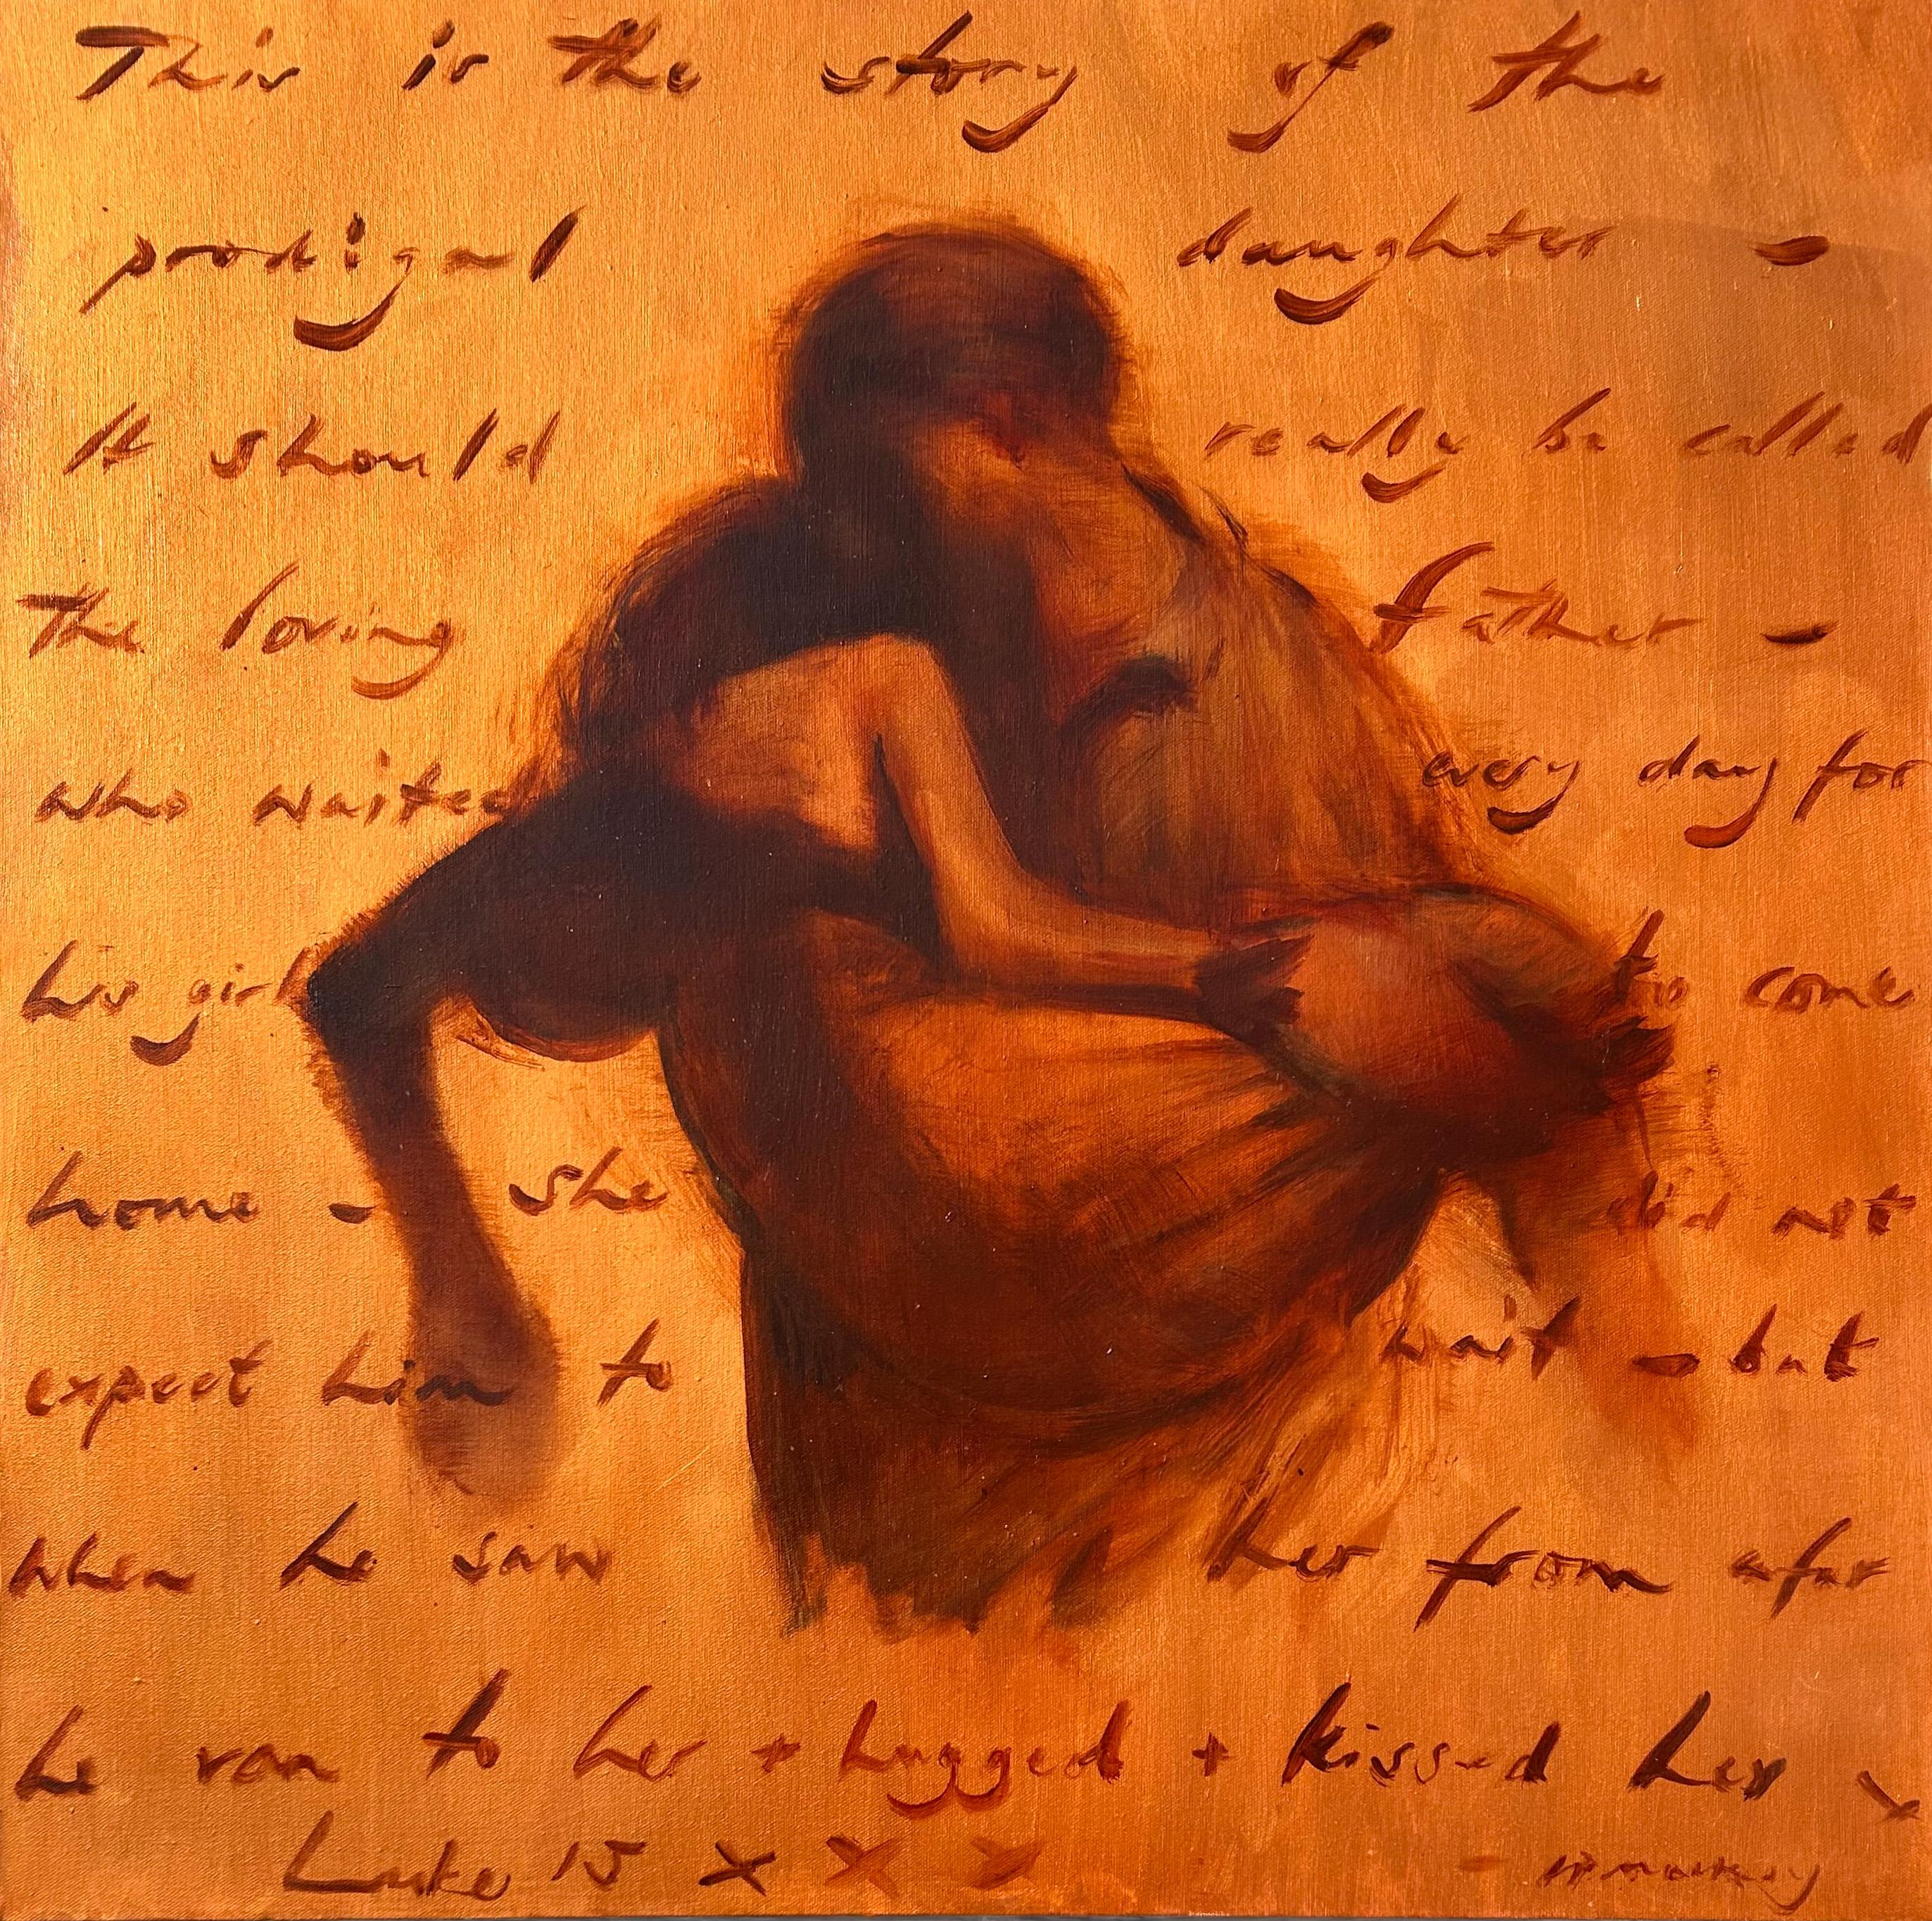 This is the story of the
prodigal daughter -
It should really be called
the loving father -
who waited every day for
his girl to come
home - she did not
expect him to wait - but
when he saw her from afar
he ran to her + hugged + kissed her x
Luke 15 x x x